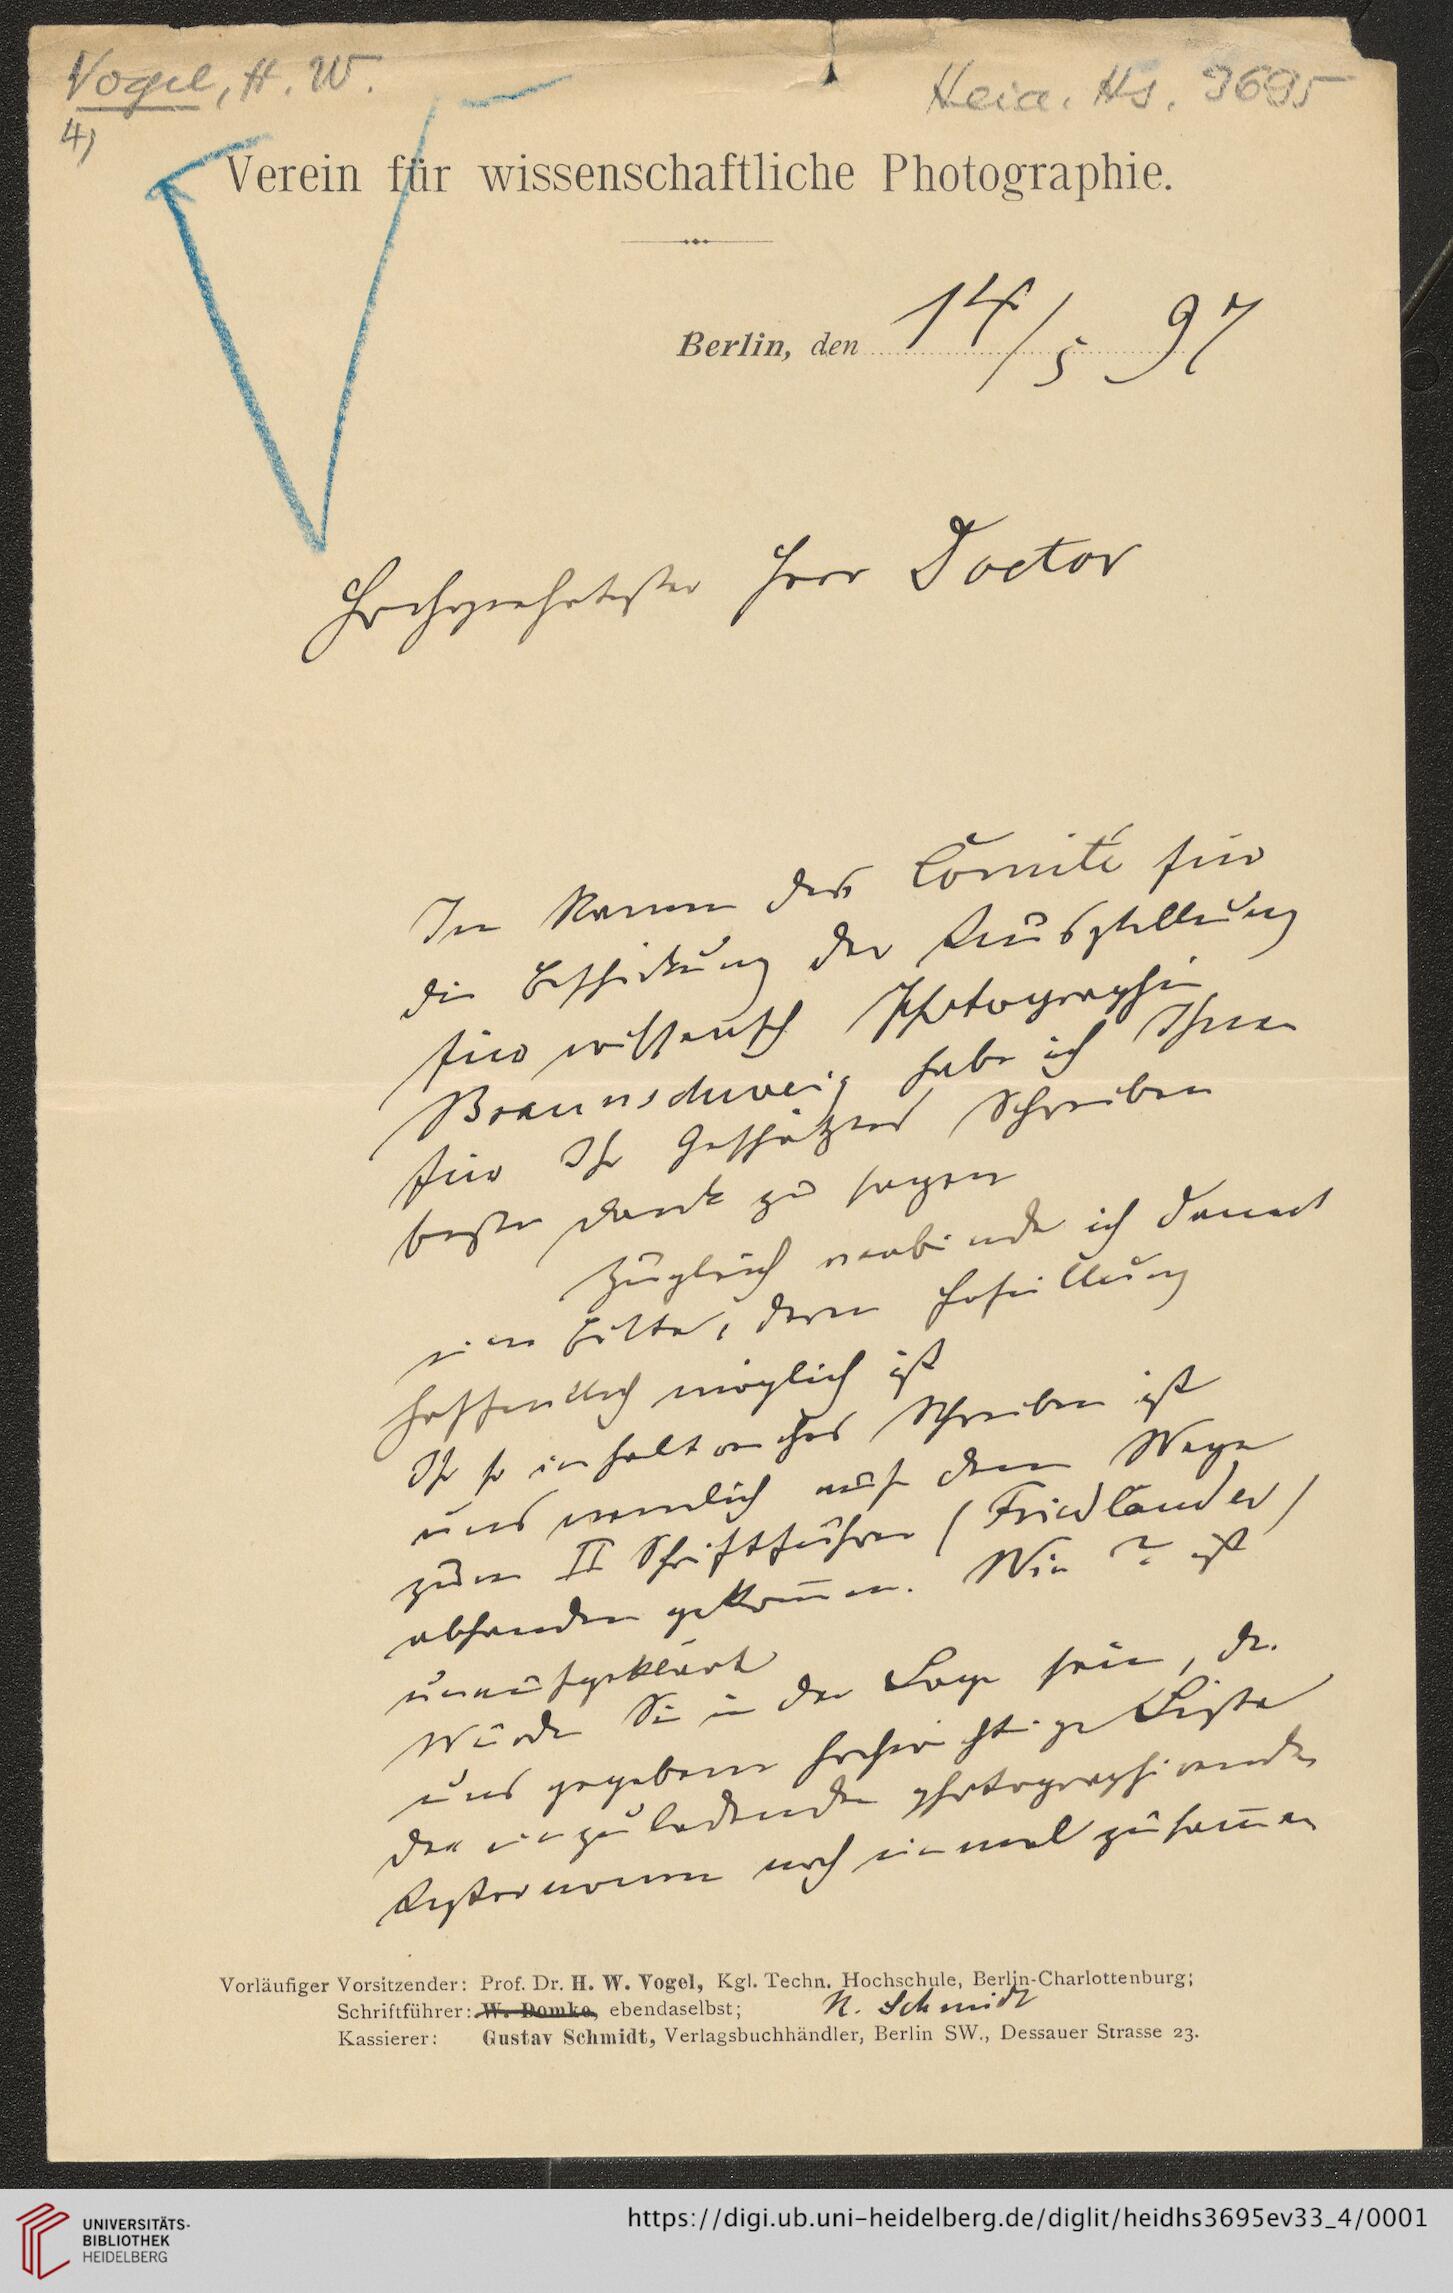 Vogel, H. W.
Heid. Hs. 3695
4)
Verein für wissenschaftliche Photographie.
Berlin, den 14/5 97
Hochgeehrtester Herr Doctor
Im Namen des Comité für
die Beschickung der Ausstellung
für wissensch Photographie
Braunschweig habe ich Ihnen
für Ihr geschätztes Schreiben
besten Dank zu sagen
Zugleich verbinde ich damit
eine Bitte, deren Erfüllung
hoffentlich möglich ist
Ihr so inhaltreiches Schreiben ist
uns nemlich auf dem Wege
zum II Schriftführer (Friedländer)
abhanden gekom̅en. Wie? ist
unaufgeklärt
Würden Sie in der Lage sein, die
uns gegebene hochwichtige Liste
der einzuladenden photographirenden
Astronomen noch einmal zusam̅en
Vorläufiger Vorsitzender: Prof. Dr. H. W. Vogel, Kgl. Techn. Hochschule, Berlin-Charlottenburg;
Schriftführer: W. Domke, ebendaselbst; N. Schmidt
Kassierer: Gustav Schmidt, Verlagsbuchhändler, Berlin SW., Dessauer Strasse 23.
UNIVERSITÄTS-
BIBLIOTHEK
HEIDELBERG
https://digi.ub.uni-heidelberg.de/diglit/heidhs3695ev33_4/0001